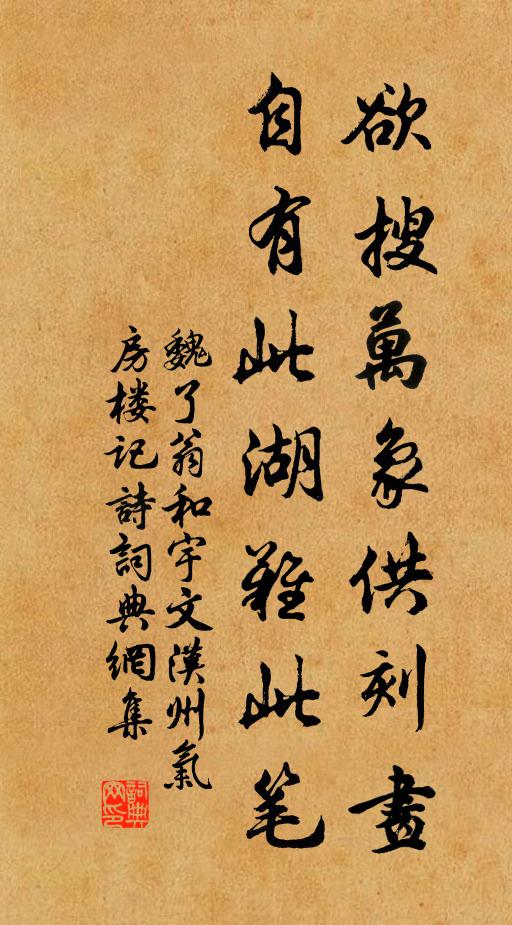 欲搜萬象供刻畫
自有此湖難此笔
魏了翁和宇文漢州氣
房楼记詩詞典網集
詞典網印